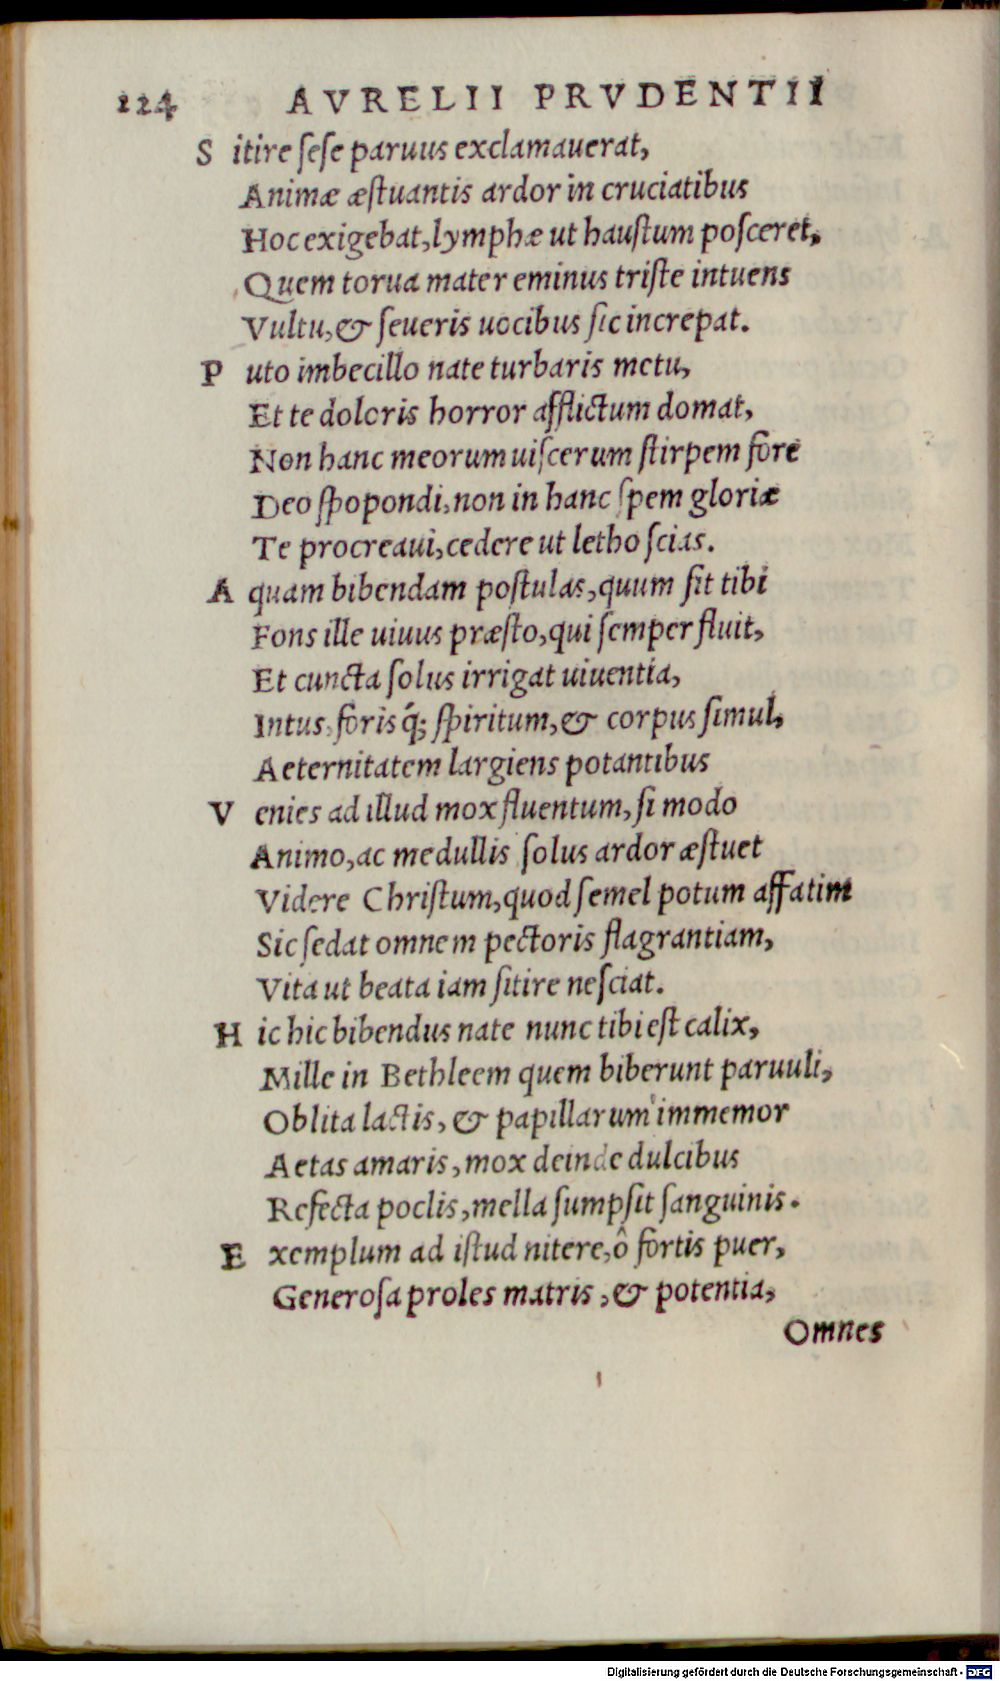 224 AVRELII PRVDENTII
S itire ſeſe paruus exclamauerat,
Animæ æſtuantis ardor in cruciatibus
Hoc exigebat, lymphæ ut hauſtum poſceret,
Quem torua mater eminus triſte intuens
Vultu, & ſeueris uocibus ſic increpat.
P uto imbecillo nate turbaris metu,
Et te doloris horror afflictum domat,
Non hanc meorum uiſcerum ſtirpem fore
Deo ſpopondi, non in hanc ſpem gloriæ
Te procreaui, cedere ut letho ſcias.
A quam bibendam poſtulas, quum ſit tibi
Fons ille uiuus præſto, qui ſemper fluit,
Et cuncta ſolus irrigat uiuentia,
Intus, foris q́; ſpiritum, & corpus ſimul,
Aeternitatem largiens potantibus
V enies ad illud mox fluentum, ſi modo
Animo, ac medullis ſolus ardor æſtuet
Videre Chriſtum, quod ſemel potum affatim
Sic ſedat omnem pectoris flagrantiam,
Vita ut beata iam ſitire neſciat.
H ic hic bibendus nate nunc tibi eſt calix,
Mille in Bethleem quem biberunt paruuli,
Oblita lactis, & papillarum immemor
Aetas amaris, mox deinde dulcibus
Refecta poclis, mella ſumpſit ſanguinis.
E xemplum ad iſtud nitere, ô fortis puer,
Generoſa proles matris, & potentia,
Omnes
Digitalisierung gefördert durch die Deutsche Forschungsgemeinschaft - DFG